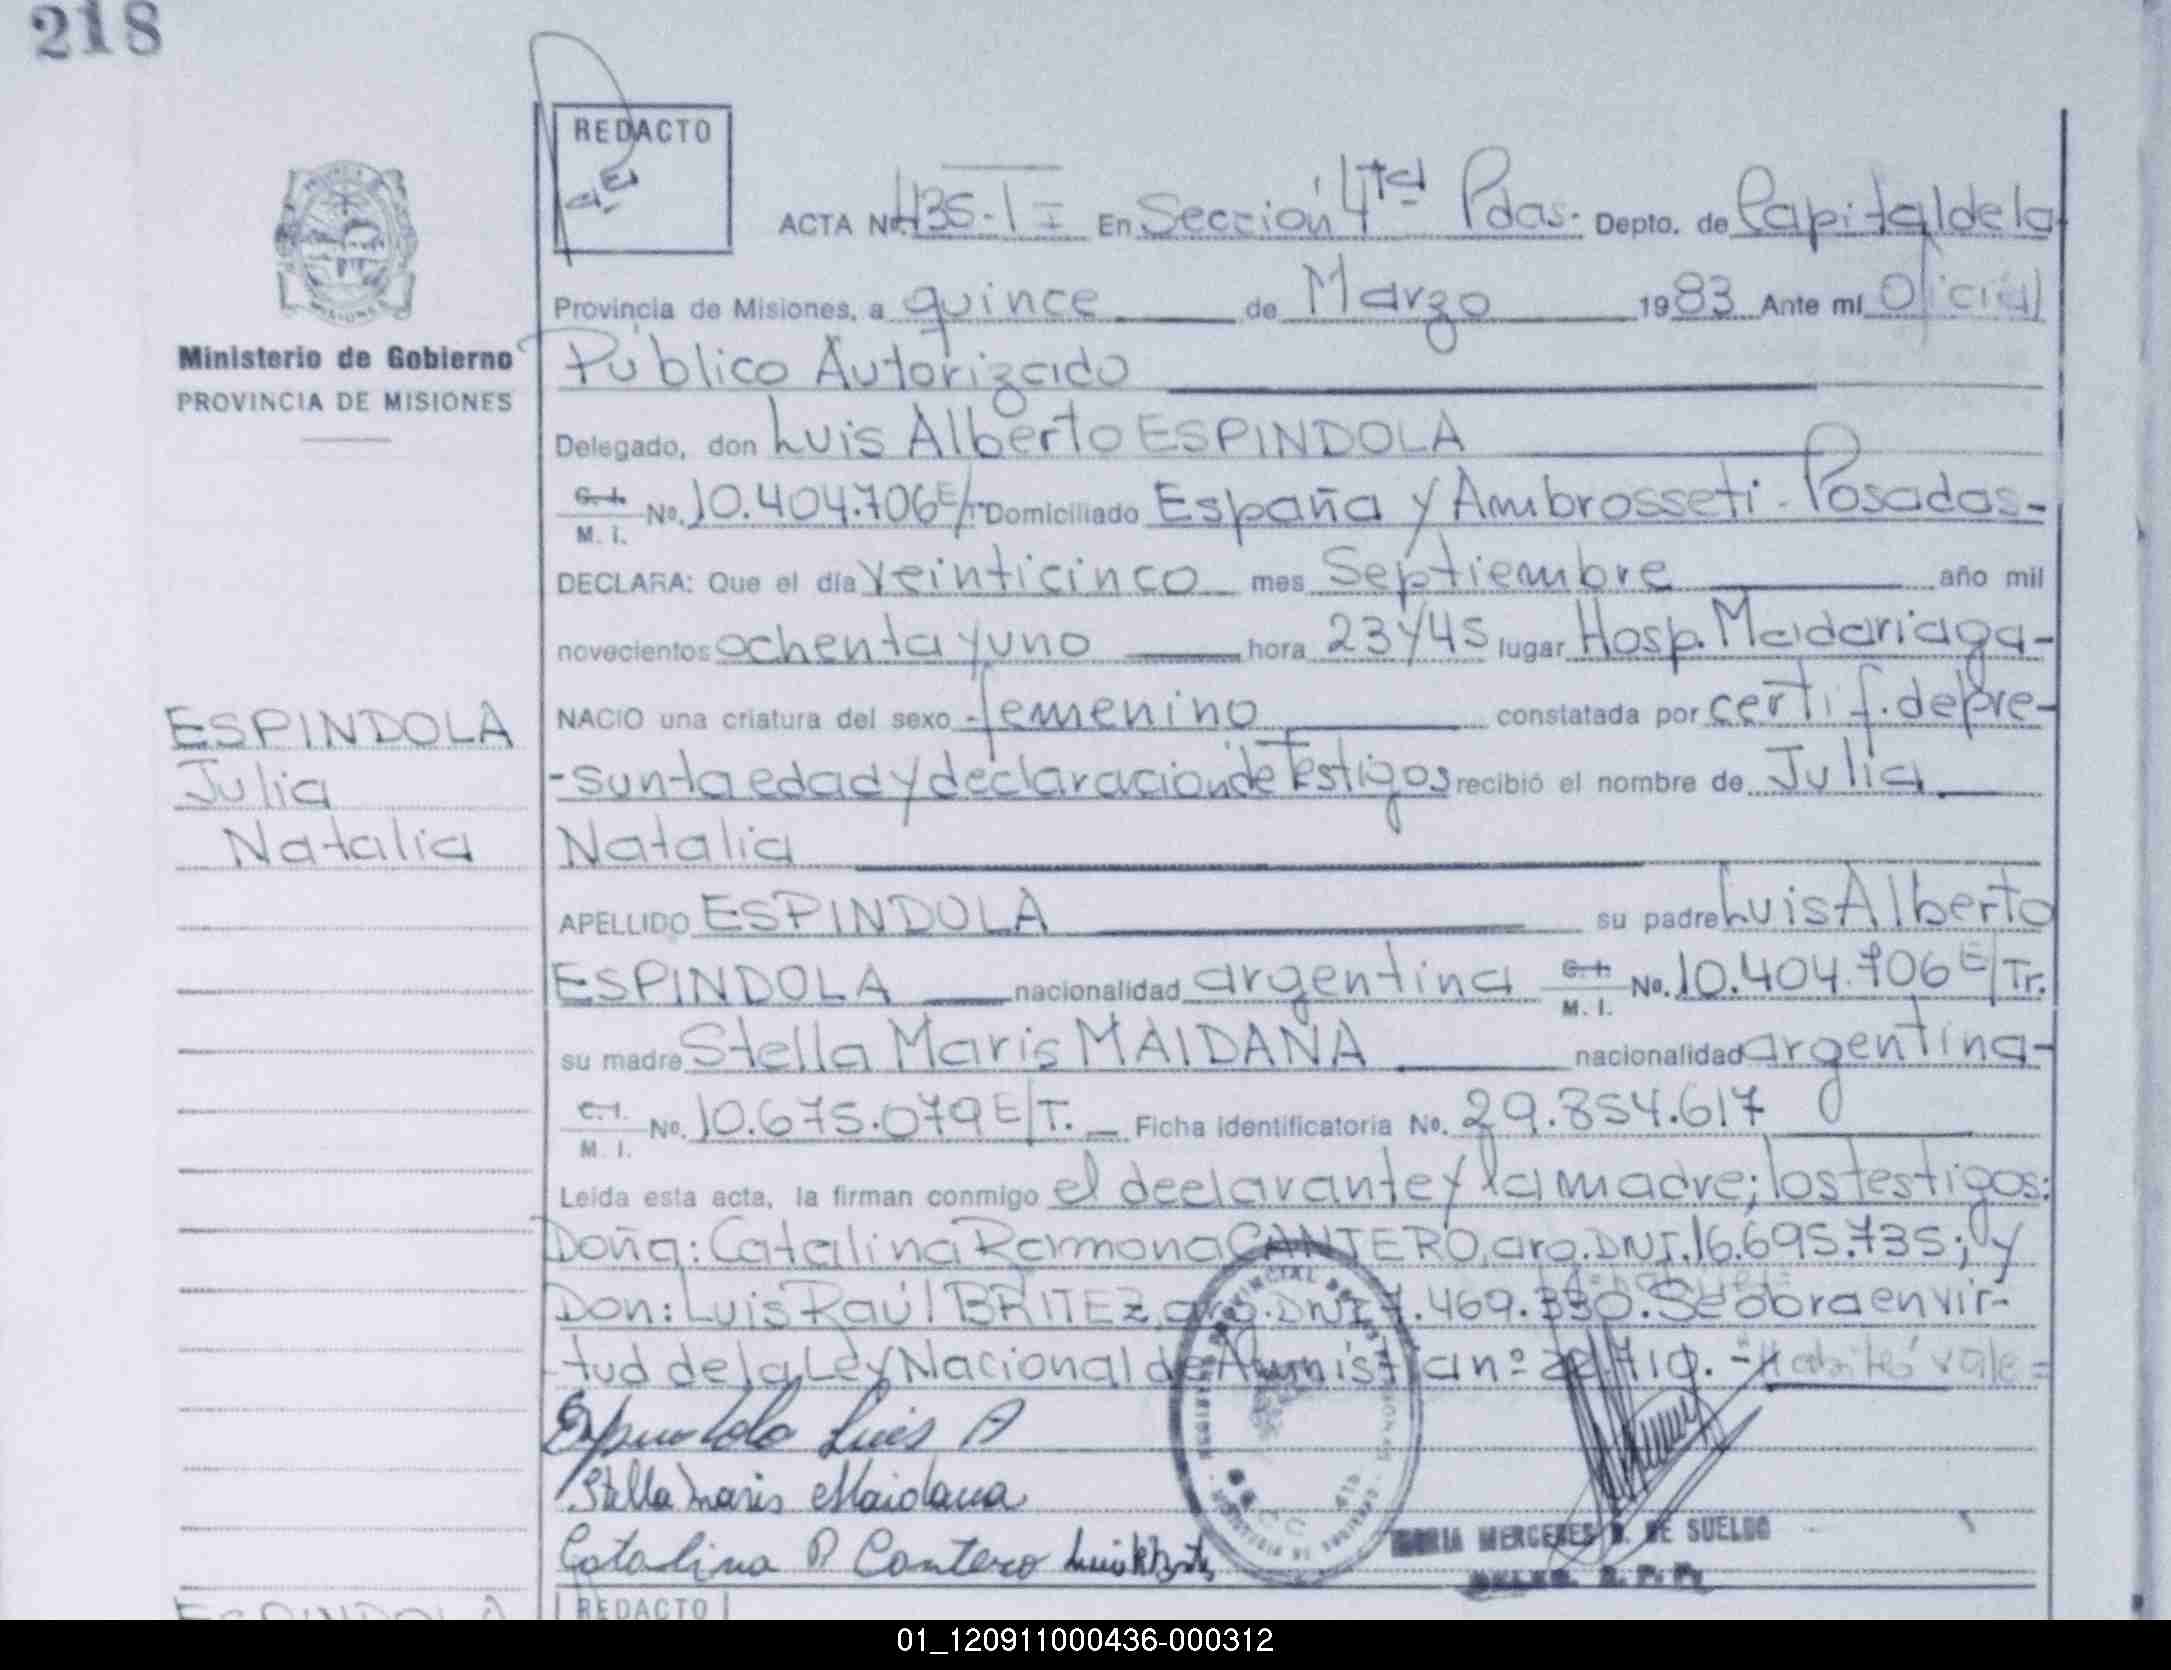 218
REDACTO
ACTA No. 435-I En Sección 4ta Pdas- Depto. de Capital de la
Provincia de Misiones, a quince de Marzo 1983 Ante mí Oficial
Ministerio de Gobierno
PROVINCIA DE MISIONES
Público Autorizado
Delegado, don Luis Alberto ESPINDOLA
C. I.
M. I.
No. 10.404.706 E/T Domiciliado España y Ambrosseti - Posadas-
DECLARA: Que el día veinticinco mes Septiembre año mil
novecientos ochenta y uno hora 23 y 45 lugar Hosp. Madariaga-
NACIO una criatura del sexo femenino constatada por certif. de pre-
-sunta edad y declaración de Testigos recibió el nombre de Julia
Natalia
ESPINDOLA
Julia
Natalia
APELLIDO ESPINDOLA su padre Luis Alberto
ESPINDOLA nacionalidad argentina C. I. M. I. No. 10.404.706 E/Tr.
su madre Stella Maris MAIDANA nacionalidad argentina-
C. I.
M. I.
No. 10.675.079 E/T. Ficha identificatoria No. 29.854.617
Leída esta acta, la firman conmigo el declarante y la madre; los testigos:
Doña: Catalina Ramona CANTERO, arg. DNI. 16.695.735; y
Don: Luis Raúl BRITEZ, arg. DNI 7.469.330. Se obra en vir-
tud de la Ley Nacional de Amnistía nº
vale=
Espindola Luis A
Stella Maris Maidana
Catalina R Cantero
MERCEDES DE SUELDO
ESPINDOLA
REDACTO
01_120911000436-000312